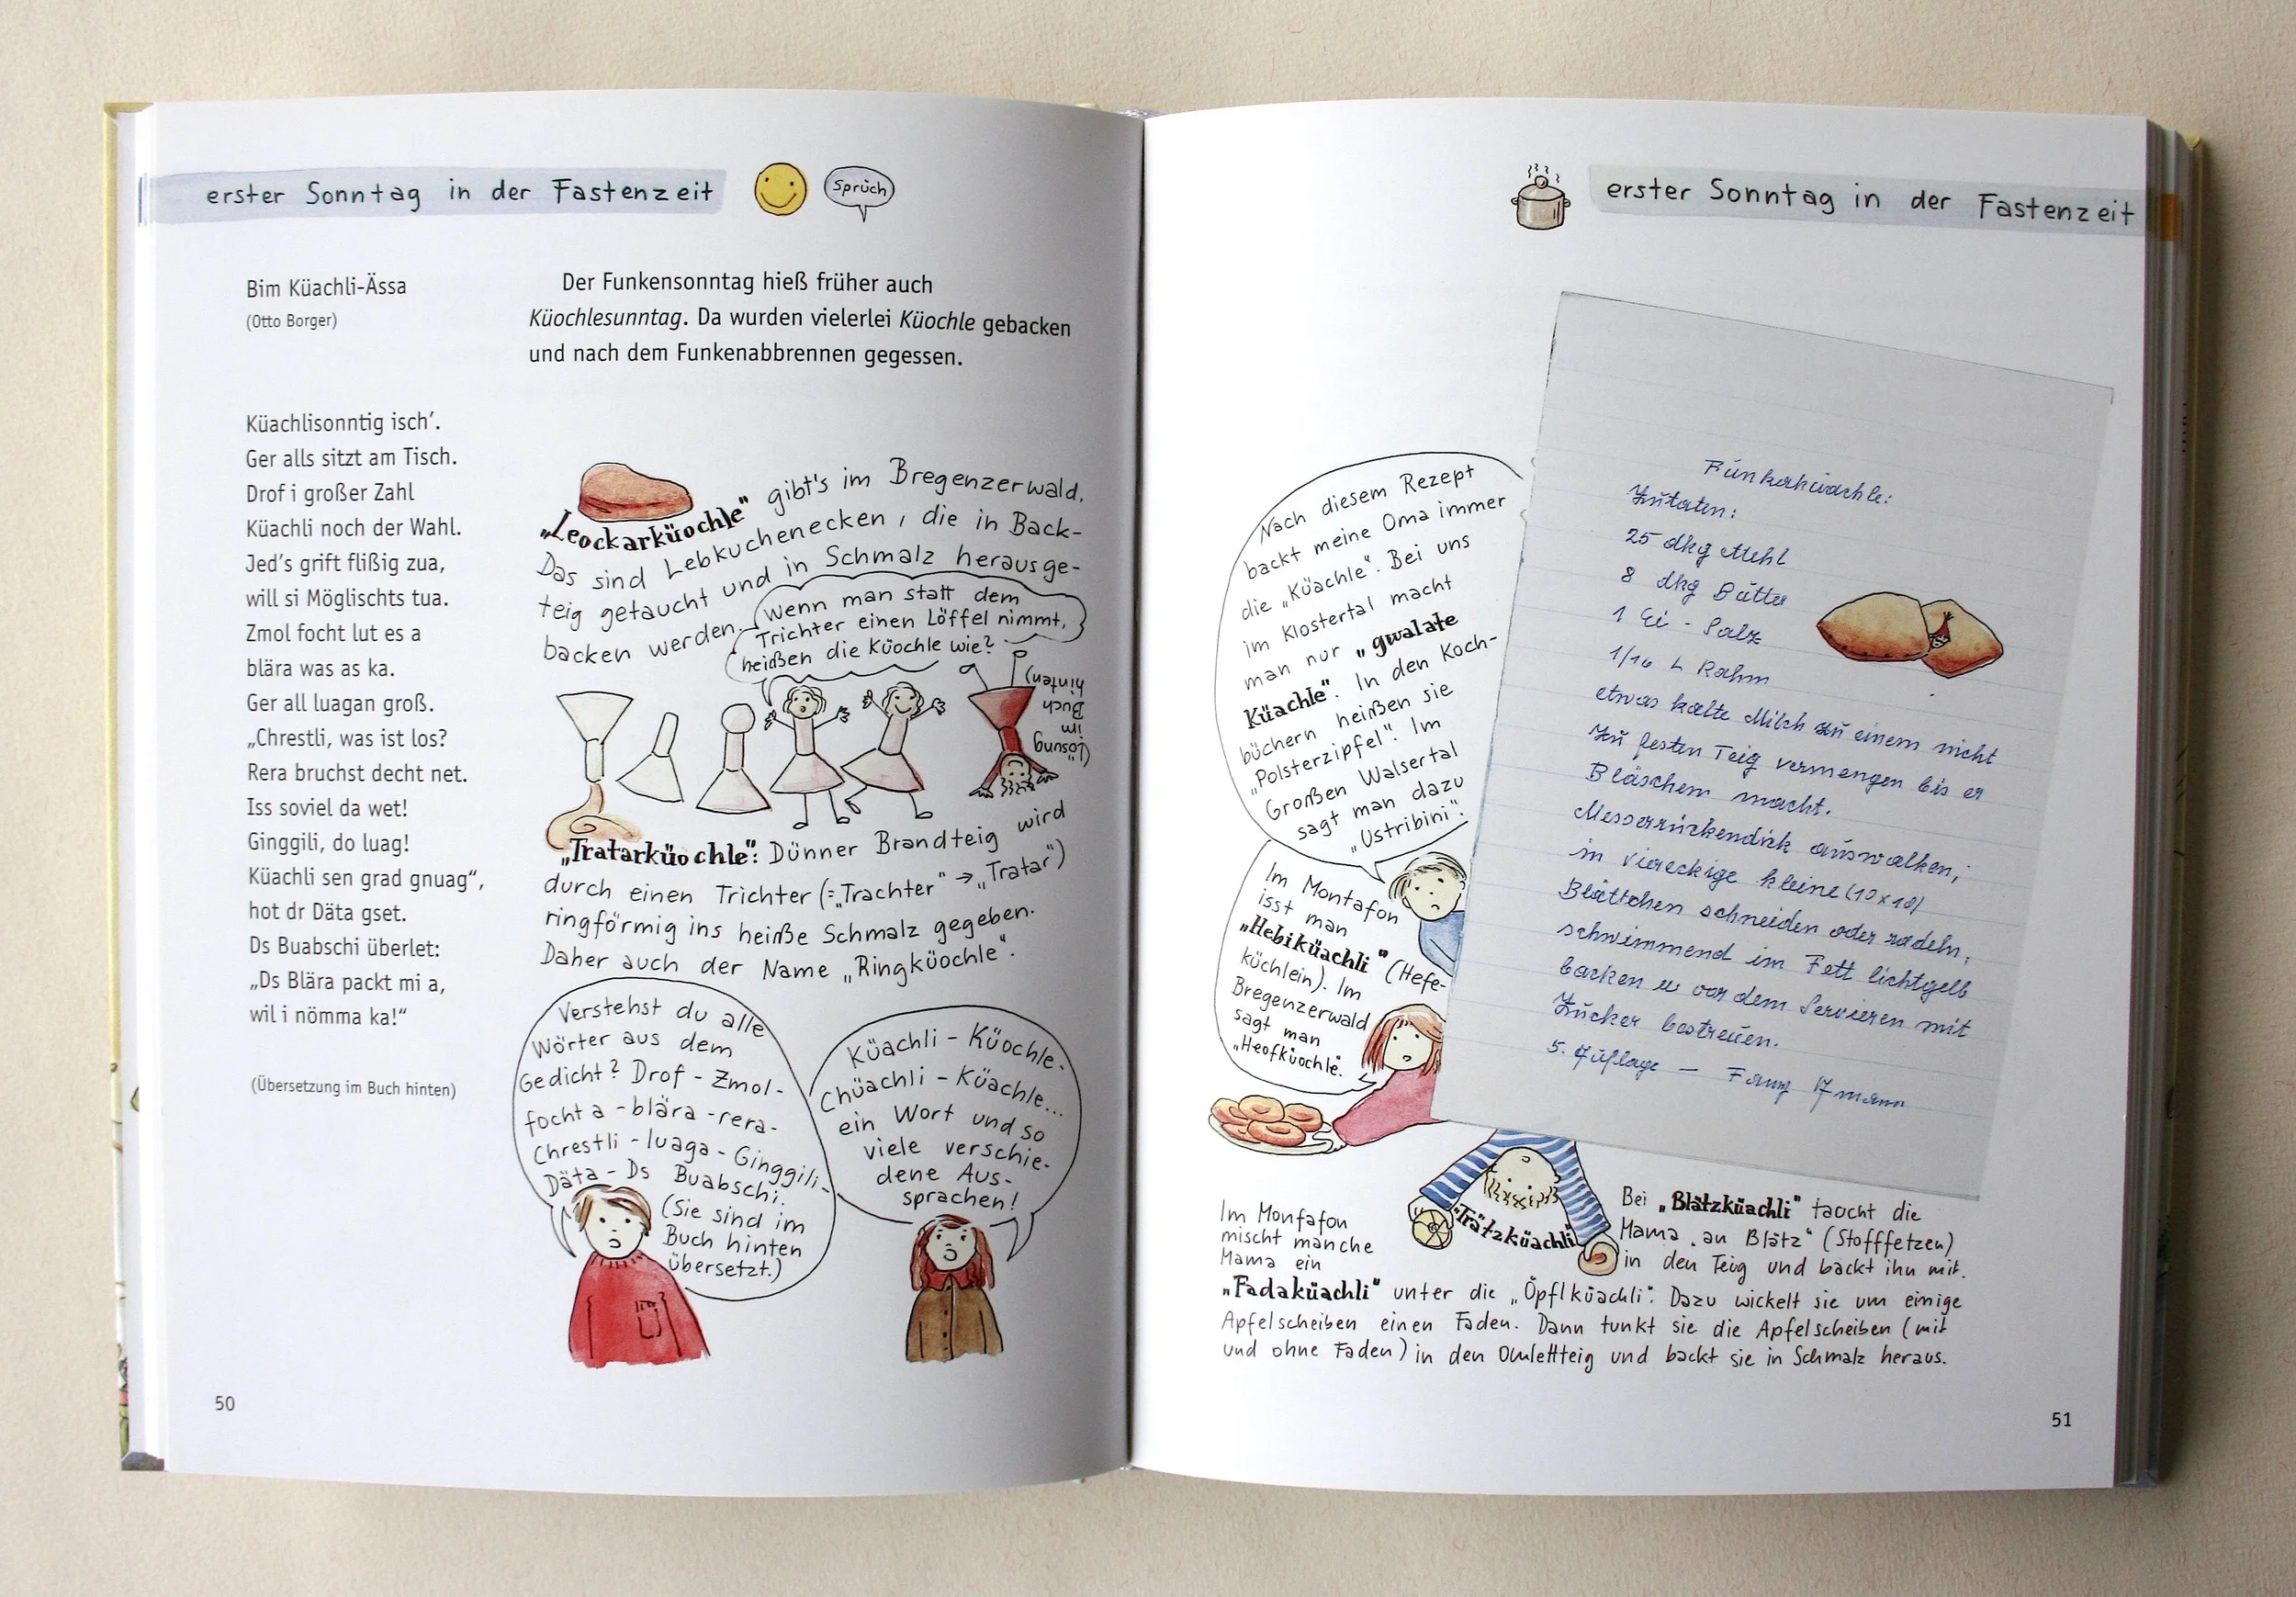 erster Sonntag in der Fastenzeit
Sprüch
Bim Küachli-Ässa
(Otto Borger)
Küachlisonntig isch’.
Ger alls sitzt am Tisch.
Drof i großer Zahl
Küachli noch der Wahl.
Jed’s grift flißig zua,
will si Möglischts tua.
Zmol focht lut es a
blära was as ka.
Ger all luagan groß.
„Chrestli, was ist los?
Rera bruchst decht net.
Iss soviel da wet!
Ginggili, do luag!
Küachli sen grad gnuag“,
hot dr Däta gset.
Ds Buabschi überlet:
„Ds Blära packt mi a,
wil i nömma ka!“
(Übersetzung im Buch hinten)
Der Funkensonntag hieß früher auch
Küochlesunntag. Da wurden vielerlei Küochle gebacken
und nach dem Funkenabbrennen gegessen.
„Leockarküochle“ gibt's im Bregenzerwald.
Das sind Lebkuchenecken, die in Back-
teig getaucht und in Schmalz herausge-
backen werden.
Wenn man statt dem
Trichter einen Löffel nimmt,
heißen die Küochle wie?
(Lösung
im
Buch
hinten)
„Tratarküochle“: Dünner Brandteig wird
durch einen Trichter (=„Trachter“ → „Tratar“)
ringförmig ins heiße Schmalz gegeben.
Daher auch der Name „Ringküochle“.
Verstehst du alle
Wörter aus dem
Gedicht? Drof - Zmol -
focht a - blära - rera -
Chrestli - luaga - Ginggili -
Däta - Ds Buabschi.
(Sie sind im
Buch hinten
übersetzt.)
Küachli - Küochle -
Chüachli - Küächle...
ein Wort und so
viele verschie-
dene Aus-
sprachen!
50
erster Sonntag in der Fastenzeit
Nach diesem Rezept
backt meine Oma immer
die „Küachle“. Bei uns
im Klostertal macht
man nur „gwalate
Küachle“. In den Koch-
büchern heißen sie
„Polsterzipfel“. Im
Großen Walsertal
sagt man dazu
„Ustribini“.
Im Montafon
isst man
„Hebiküachli“ (Hefe-
küchlein). Im
Bregenzerwald
sagt man
„Heofküochle“.
Funkaküachle:
Zutaten:
25 dkg Mehl
8 dkg Butter
1 Ei - Salz
1/16 L Rahm
etwas kalte Milch zu einem nicht
zu festen Teig vermengen bis er
Bläschen macht.
Messerrückendick auswalken,
in viereckige kleine (10x10)
Blättchen schneiden oder radeln,
schwimmend im Fett lichtgelb
backen u vor dem Servieren mit
Zucker bestreuen.
5. Auflage —
„Trätzküachli“
Im Monfafon
mischt manche
Mama ein
„Fadaküachli“ unter die „Öpflküachli“. Dazu wickelt sie um einige
Apfelscheiben einen Faden. Dann tunkt sie die Apfelscheiben (mit
und ohne Faden) in den Omlettteig und backt sie in Schmalz heraus.
Bei „Blätzküachli“ taucht die
Mama „an Blätz“ (Stofffetzen)
in den Teig und backt ihn mit.
51